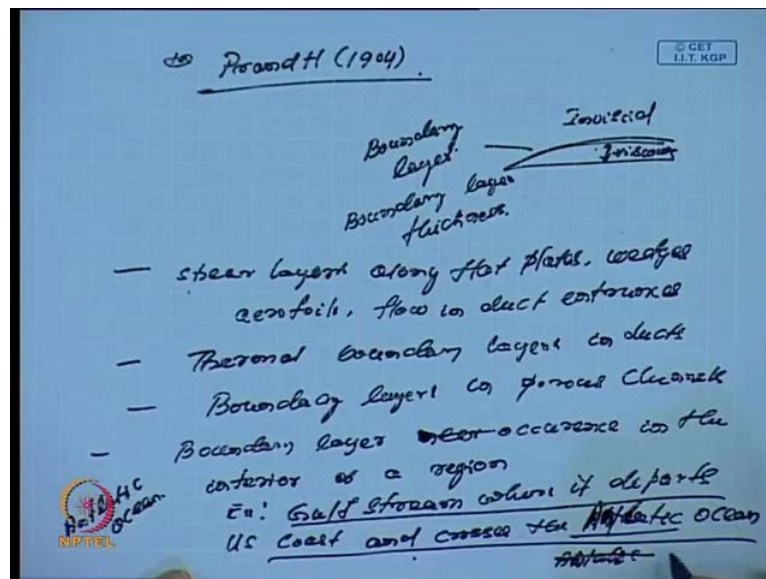 to Prandtl (1904).
© CET
I.I.T. KGP
Inviscid
Boundary
layer.
Viscous
Boundary layer
thickness.
— shear layers along flat plates, wedges
aerofoils, flow in duct entrances
— Thermal boundary layers in ducts
— Boundary layers in porous channels
— Boundary layer occurence in the
interior of a region
Ex: Gulf Stream where it departs
US coast and crosses the Atlantic Ocean
Atlantic
Ocean.
NPTEL